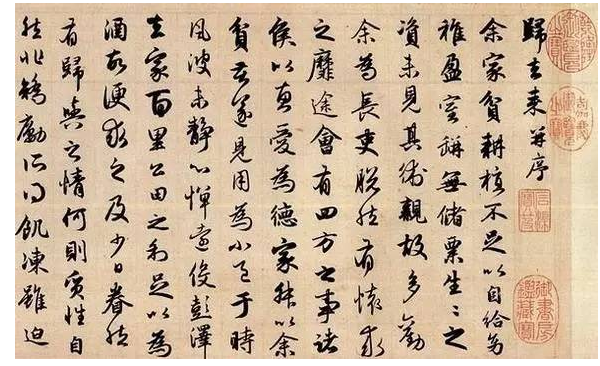 歸去来并序
余家貧耕植不足以自給幼
稚盈室缾無儲粟生〻之
資未見其術親故多勸
余為長吏脱然有懷求
之靡途會有四方之事諸
侯以惠愛為德家叔以余
貧苦遂見用為小邑于時
風波未静心憚遠役彭澤
去家百里公田之利足以為
酒故便求之及少日眷然
有歸與之情何則質性自
然非矯勵所得飢凍雖迫
石渠寶笈
御書房鑑藏寶